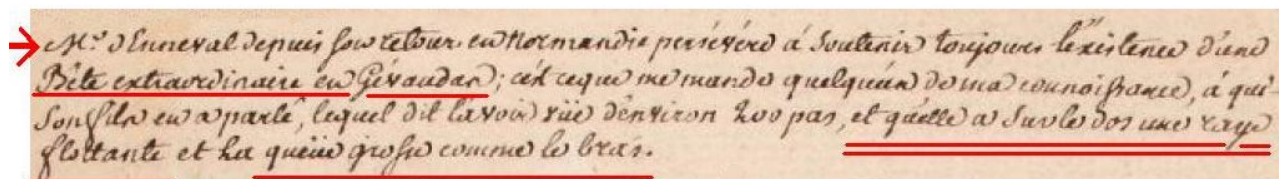 Mr. d'Enneval depuis son retour en Normandie persévére à soutenir toujours l'éxistence d'une
Bête extraordinaire en Gévaudan; c'ést ce que me mande quelqu'un de ma connoissance, à qui
son fils en a parlé, lequel dit l'avoir vüe d'environ 200 pas, et qu'elle a sur le dos une raye
flottante et La queüe grosse comme le bras.